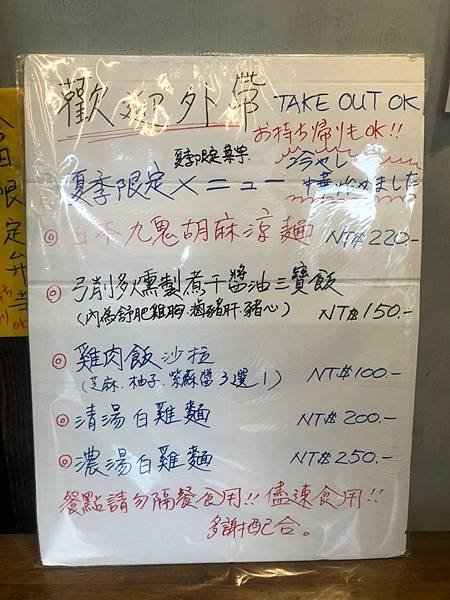 歡迎外帶 TAKE OUT OK
お持ち帰りもOK!!
夏季限定菜單
冷やし
夏季限定メニュー
始めました
◎ 日本九鬼胡麻涼麵 NT$220.-
◎ 弓削多燻製煮干醬油三寶飯
(內為舒肥雞胸.滷豬肝.豬心) NT$150.-
◎ 雞肉飯沙拉
(芝麻.柚子.紫蘇醬3選1) NT$100.-
◎ 清湯白雞麵 NT$200.-
◎ 濃湯白雞麵 NT$250.-
餐點請勿隔餐食用!! 儘速食用!!
多謝配合。
今日限定弁当